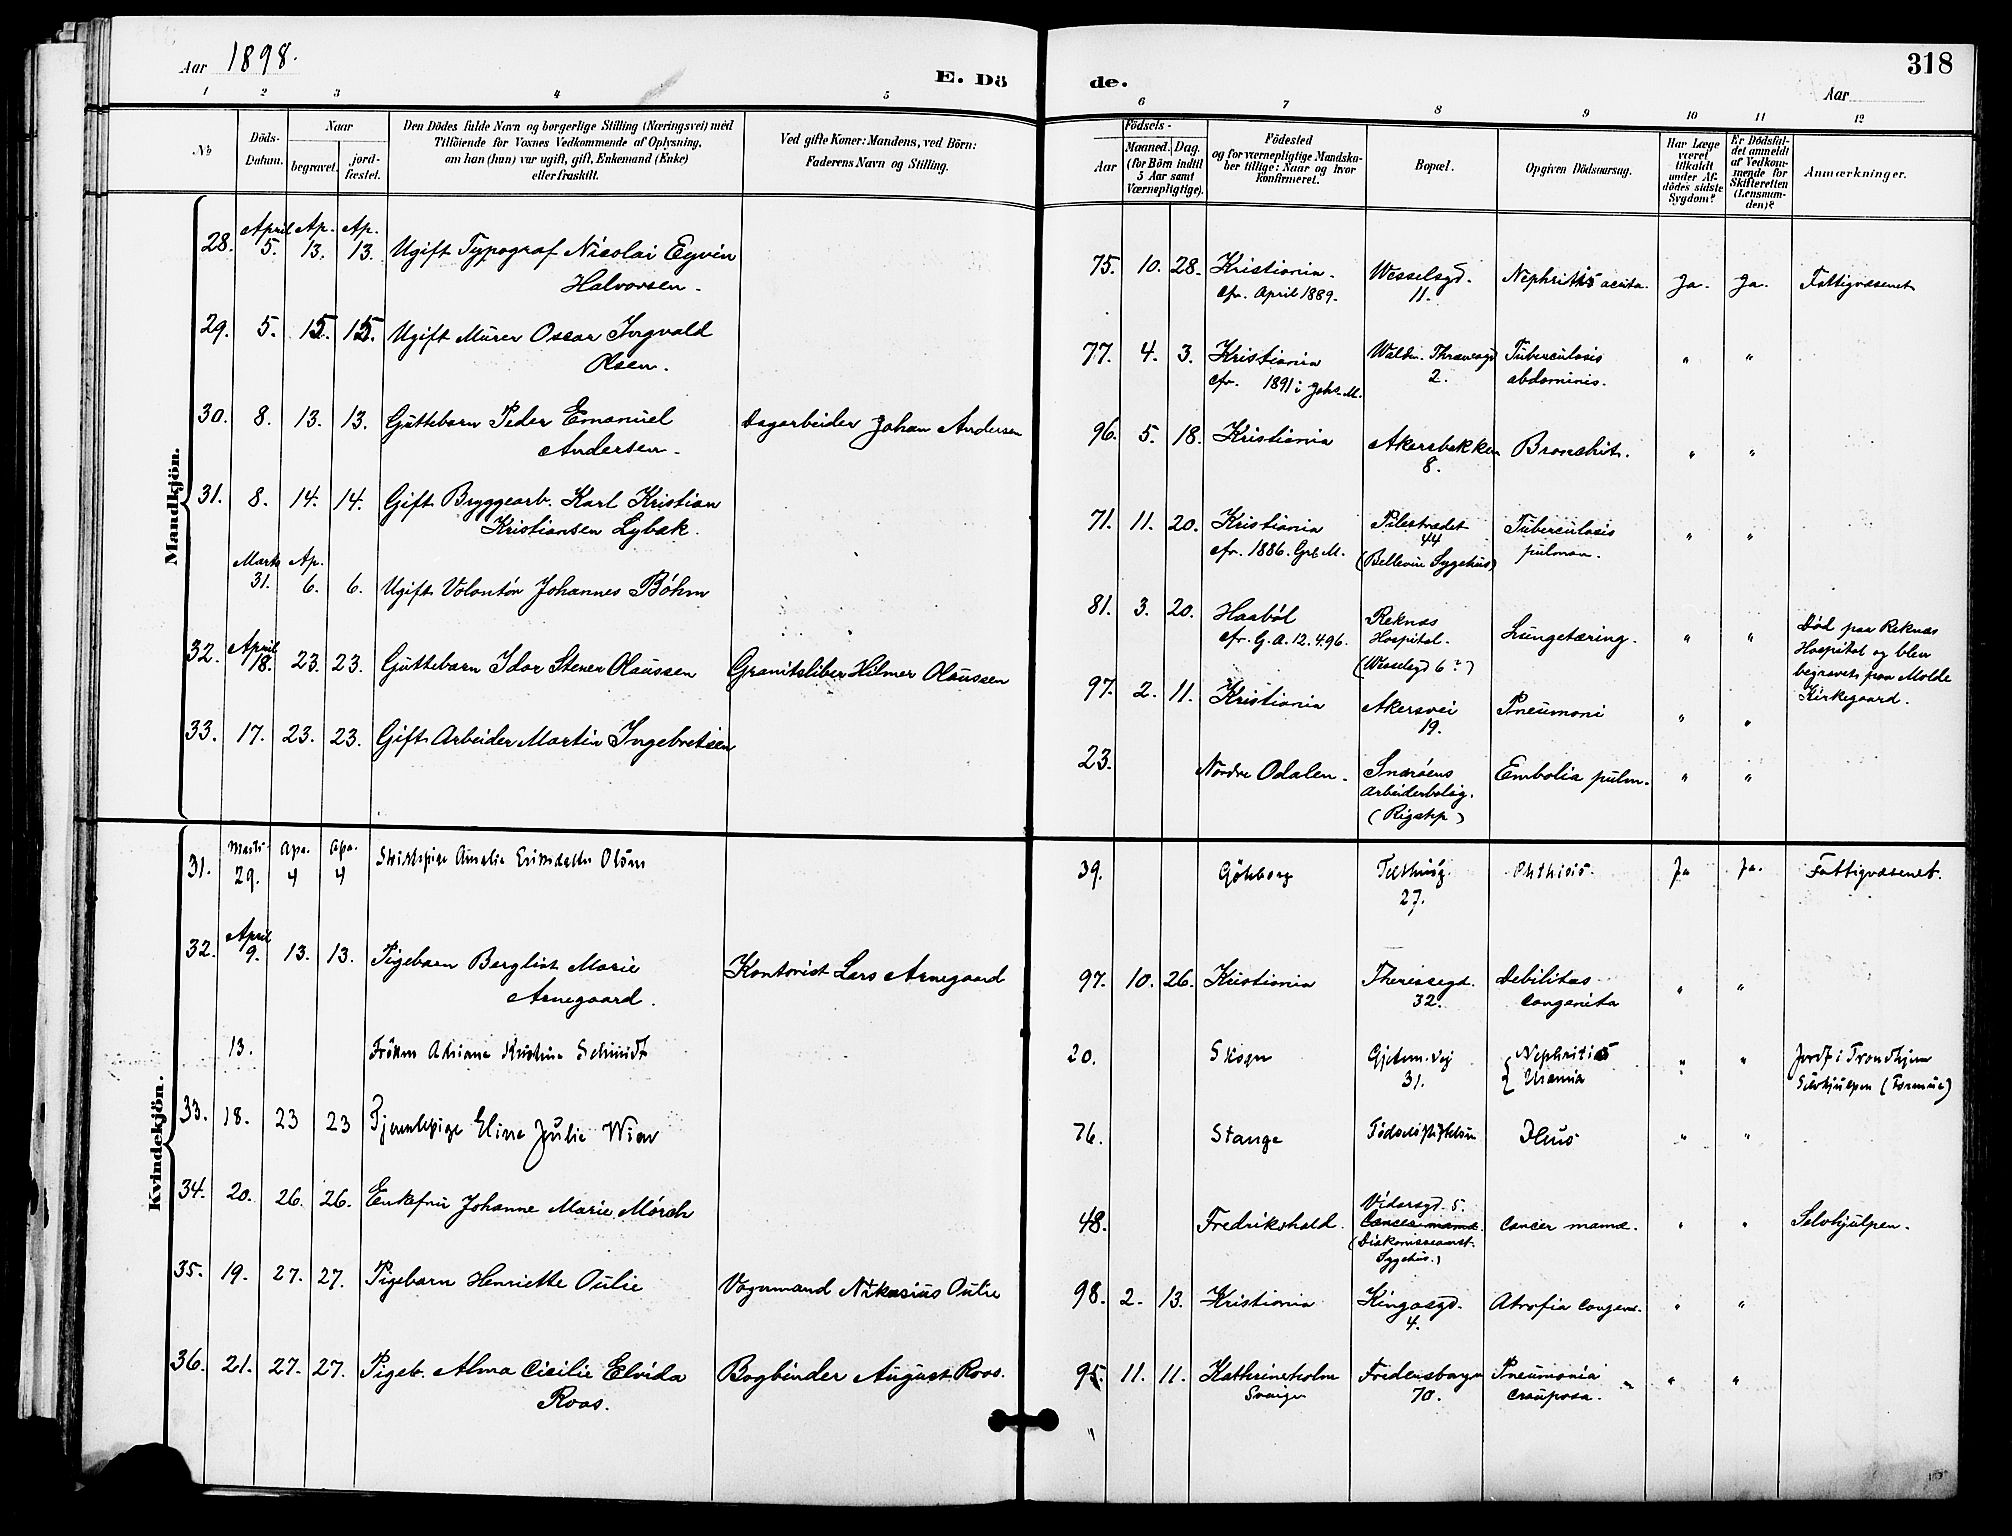 Aar 1898.
E. Dö de.
318
Aar
1 2 3 4 5 6 7 8 9 10 11 12
No
Döds-Datum.
Naar
begravet.
jordfæstet.
Den Dödes fulde Navn og borgerlige Stilling (Næringsvei) med
Tilföiende for Voxnes Vedkommende af Oplysning,
om han (hun) var ugift, gift, Enkemand (Enke)
eller fraskilt.
Ved gifte Koner: Mandens, ved Börn:
Faderens Navn og Stilling.
Födsels-
Aar
Maaned. Dag.
(for Börn indtil
5 Aar samt
Værnepligtige).
Födested
og for værnepligtige Mandska-
ber tillige: Naar og hvor
konfirmeret.
Bopæl.
Opgiven Dödsaarsag.
Har Læge
været
tilkaldt
under Af-
dödes sidste
Sygdom?
Er Dödsfal-
det anmeldt
af Vedkom-
mende for
Skifteretten
(Lensman-
den)?
Anmærkninger.
Mandkjön.
28. April 5. Ap. 13. Ap. 13. Ugift Typograf Nicolai Eyvin
Halvorsen. 75. 10. 28. Kristiania. cfr. April 1889. Wesselsgd. 11. Nephritis acuta. Ja. Ja. Fattigvæsenet
29. 5. 15. 15. Ugift Murer Oscar Ingvald
Olsen. 77. 4. 3. Kristiania cfr. 1891 i Johs. M. Waldm. Thranesgd 2. Tuberculosis abdominis. " "
30. 8. 13. 13. Guttebarn Peder Emanuel
Andersen. Dagarbeider Johan Andersen 96. 5. 18. Kristiania Akersbakken 8. Bronchit. " "
31. 8. 14. 14. Gift Bryggearb. Karl Kristian
Kristiansen Lybæk. 71. 11. 20. Kristiania cfr. 1886. Grb M. Pilestrædet 44 (Bellevue Sygehus) Tuberculosis pulmon. " "
Marts 31. Ap. 6. 6. Ugift Volontør Johannes Böhm 81. 3. 20. Haabøl cfr. G. A. 12.4.96. Reknæs Hospital. (Wesselsgd 6?) Lungetæring. " " Død paa Reknæs
Hospital og blev
begravet paa Molde
Kirkegaard.
32. April 18. 23. 23. Guttebarn Idar Stener Olaussen Granitsliber Hilmer Olaussen 97. 2. 11. Kristiania Akersvei 19. Pneumoni " "
33. 17. 23. 23. Gift Arbeider Martin Ingebretsen 23. Nordre Odalen. Snarøens Arbeiderbolig. (Rigshp) Embolia pulm. " "
Kvindekjön.
31. Marts 29. Apr. 4 Apr. 4 Amalie Olsen 39. Göteborg 27. Phthisis. Ja Ja. Fattigvæsenet.
32. April 9. 13. 13. Pigebarn Bergliot Marie
Arnegaard. Kontorist Lars Arnegaard 97. 10. 26. Kristiania Theresesgd. 32. Debilitas congenita " "
13. Frøken Adriane Kristine Schmidt 20. Skogn Gjetem. vej 31. { Nephritis Uræmia " " Jordf. i Trondhjem
Selvhjælpen (Formue)
33. 18. 23 23 Tjenestepige Eline Julie Wien 76. Stange Fødselsstiftelsen Ileus " "
34. 20. 26. 26. Enkefru Johanne Marie Mörch 48. Fredrikshald. Vidarsgd. 5. Cancer mamæ. (Diakonisseanst. Sygehus.) Cancer mamæ. " " Selvhjulpen.
35. 19. 27. 27. Pigebarn Henriette Oulie Vognmand Nikasius Oulie 98. 2. 13. Kristiania Kingosgd. 4. Atrofia congen. " "
36. 21. 27. 27. Pigeb. Alma Cicilie Elvida
Roos. Bogbinder August Roos. 95. 11. 11. Kathrineholm Sverige Fredensborgv 70. Pneumonia crouposa. " "